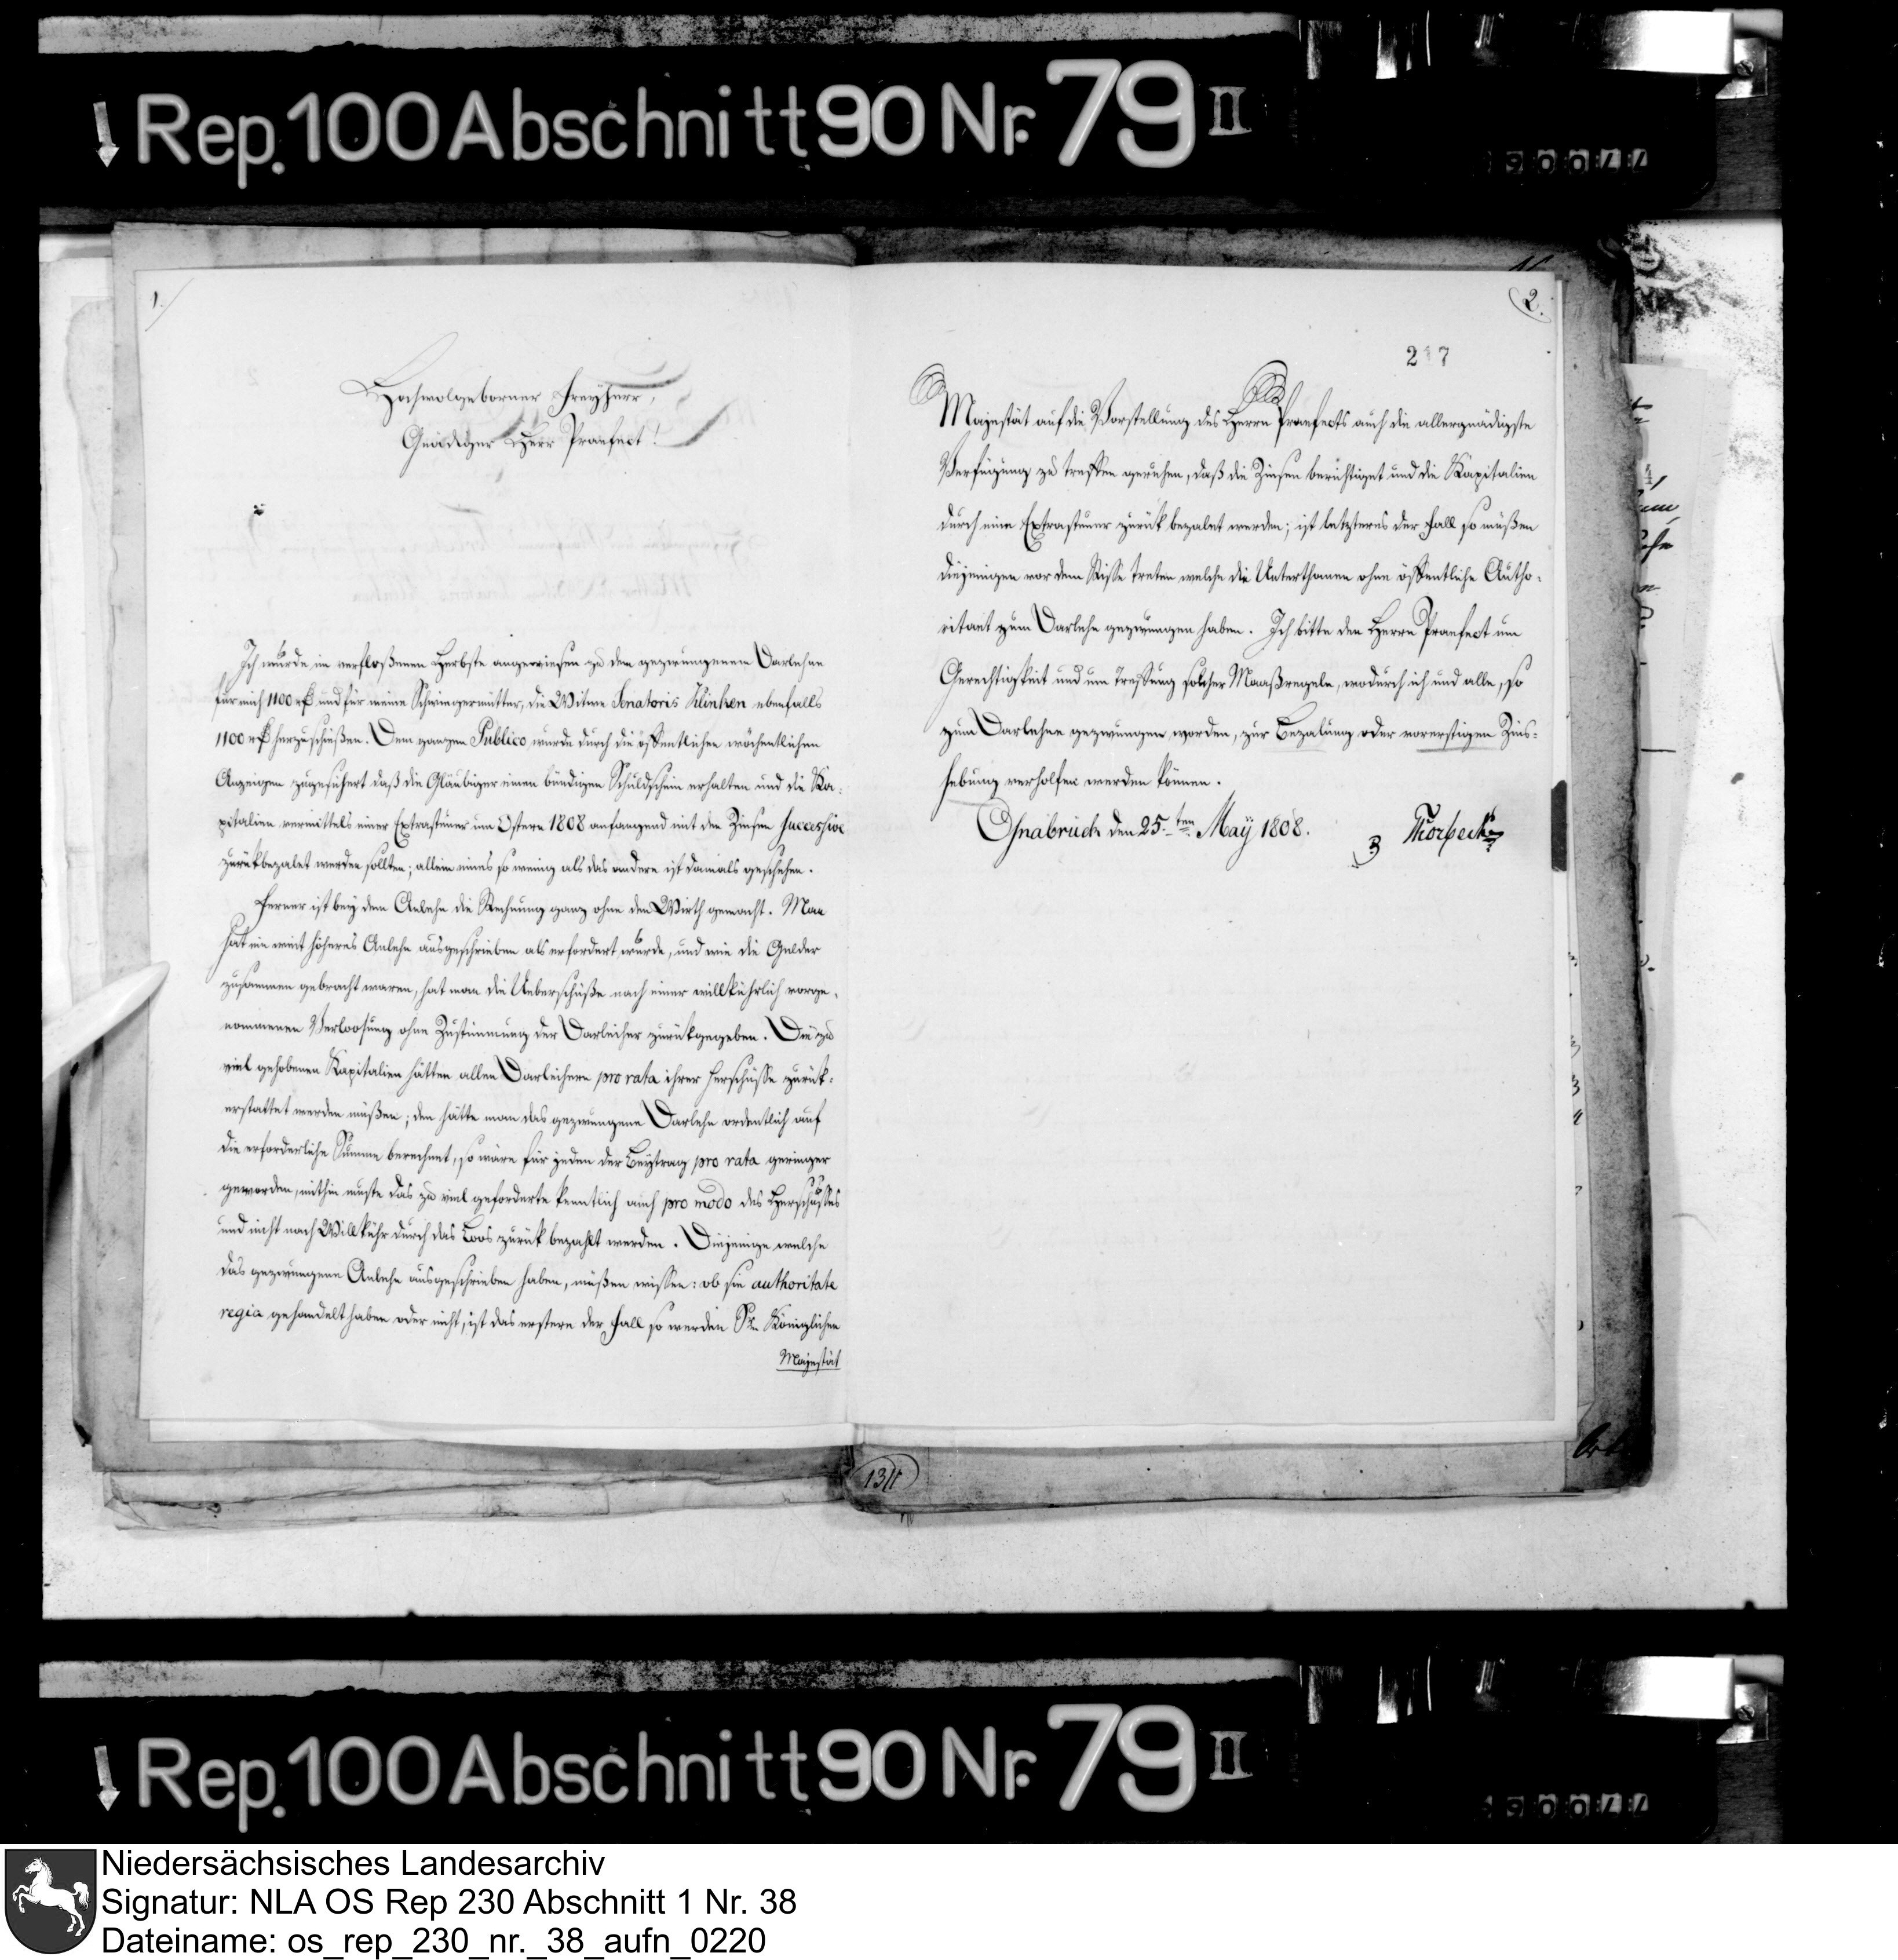 Rep. 100 Abschnitt 90 Nr. 79 II
1.
Hochwolgeborner Freyherr,
Gnädiger Herr Praefect!
Ich wurde im verfloßenen Herbste angewiesen zu dem gezwungenen Darlehne
für mich 1100 rf und für meine Schwiegermutter, die Witwe Senatoris Klinken ebenfalls
1100 rf herzuschießen. Dem ganzen Publico wurde durch die öffentlichen wöchentlichen
Anzeigen zugesichert daß die Gläubiger einen bündigen Schuldschein erhalten und die Ka-
pitalien vermittels einer Extrasteuer um Ostern 1808 anfangend mit den Zinsen successive
zurükbezalet werden sollten; allein eines so wenig als das andere ist damals geschehen.
Ferner ist bey dem Anlehn die Rechnung ganz ohne den Wirth gemacht. Man
hat ein weit höheres Anlehn ausgeschrieben als erfordert wurde, und wie die Gelder
zusammen gebracht waren, hat man die Ueberschüße nach einer willkührlich vorge-
nommenen Verloosung ohne Zustimmung der Darleiher zurükgegeben. Die zu
viel gehobenen Kapitalien hätten allen Darleihern pro rata ihrer Herschüsse zurük-
erstattet werden müßen; den hätte man das gezwungene Darlehn ordentlich auf
die erforderliche Summe berechnet, so wäre für jeden der Beytrag pro rata geringer
geworden, mithin muste das zu viel geforderte kenntlich auch pro modo des Herschusses
und nicht nach Willkühr durch das Loos zurük bezahlt werden. Diejenige welche
das gezwungene Anlehn ausgeschrieben haben, müßen wissen: ob sie authoritate
regia gehandelt haben oder nicht, ist das erstere der Fall so werden Sr. Königlichen
Majestät
2.
217
Majestät auf die Vorstellung des Herrn Praefects auch die allergnädigste
Verfügung zu treffen geruhen, daß die Zinsen berichtiget und die Kapitalien
durch eine Extrasteuer zurük bezalet werden; ist letzteres der Fall so müßen
diejenigen vor dem Risse treten welche die Unterthanen ohne öffentliche Autho-
ritaet zum Darlehn gezwungen haben. Ich bitte den Herrn Praefect um
Gerechtigkeit und um Treffung solcher Maaßregeln, wodurch ich und alle, so
zum Darlehne gezwungen worden, zur Bezalung oder vorerstigen Zins-
hebung verholfen werden können.
Osnabrück den 25.ten May 1808.
Thorbecke
Rep. 100 Abschnitt 90 Nr. 79 II
Niedersächsisches Landesarchiv
Signatur: NLA OS Rep 230 Abschnitt 1 Nr. 38
Dateiname: os_rep_230_nr._38_aufn_0220